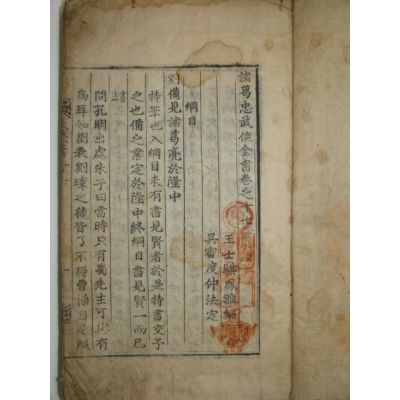 諸葛忠武侯全書卷之十七
王士騏
吳審度仲法定
綱目
劉備見諸葛亮於隆中
書法
特筆也入綱目未有書見賢者於是特書交予
之也備之業定於隆中終綱目書見賢一而已
問孔明出處朱子曰當時只有蜀先主可與有
為耳如劉表劉璋之徒皆了不得曹操自是賊